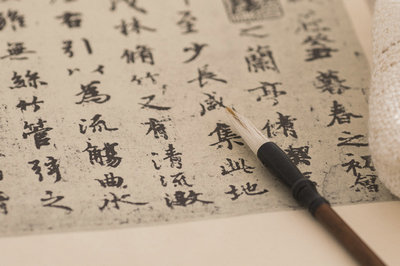 癸丑暮春之初會
之蘭亭脩禊
至少長咸集此地
茂林脩竹又有清流激
右引以為流觴曲水
無絲竹管弦之